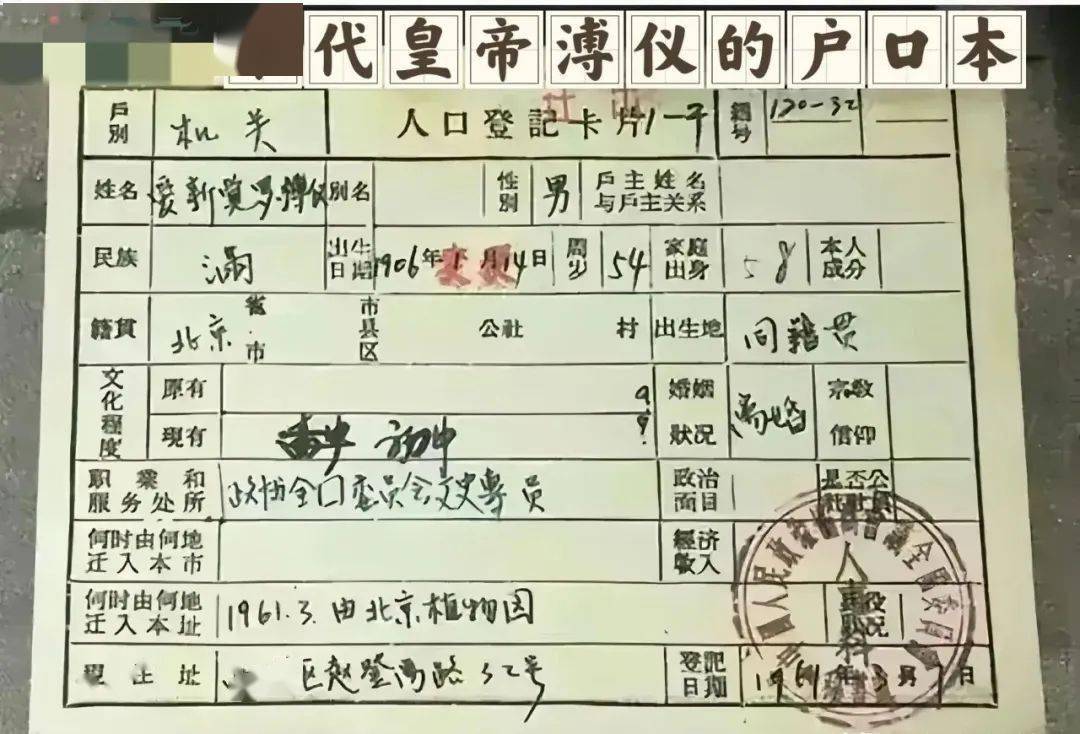 代皇帝溥仪的户口本
戶別 机关 人口登記卡片 编号 120-32
姓名 爱新觉罗溥仪 別名 性別 男 戶主姓名与戶主关系
民族 满 出生日期 1906年 月14日 周岁 54 家庭出身 本人成分
籍貫 北京 省市 市县区 公社 村 出生地 同籍贯
文化程度 原有 婚姻狀况 宗教信仰
現有 初中
职业和服务处所 政协全国委员会文史專员 政治面目 是否公社社員
何时由何地迁入本市 經济收入
何时由何地迁入本址 1961.3.由北京植物园 兵役狀况
現住址 区赵登禹路32号 登記日期 1961年3月 日
人事科